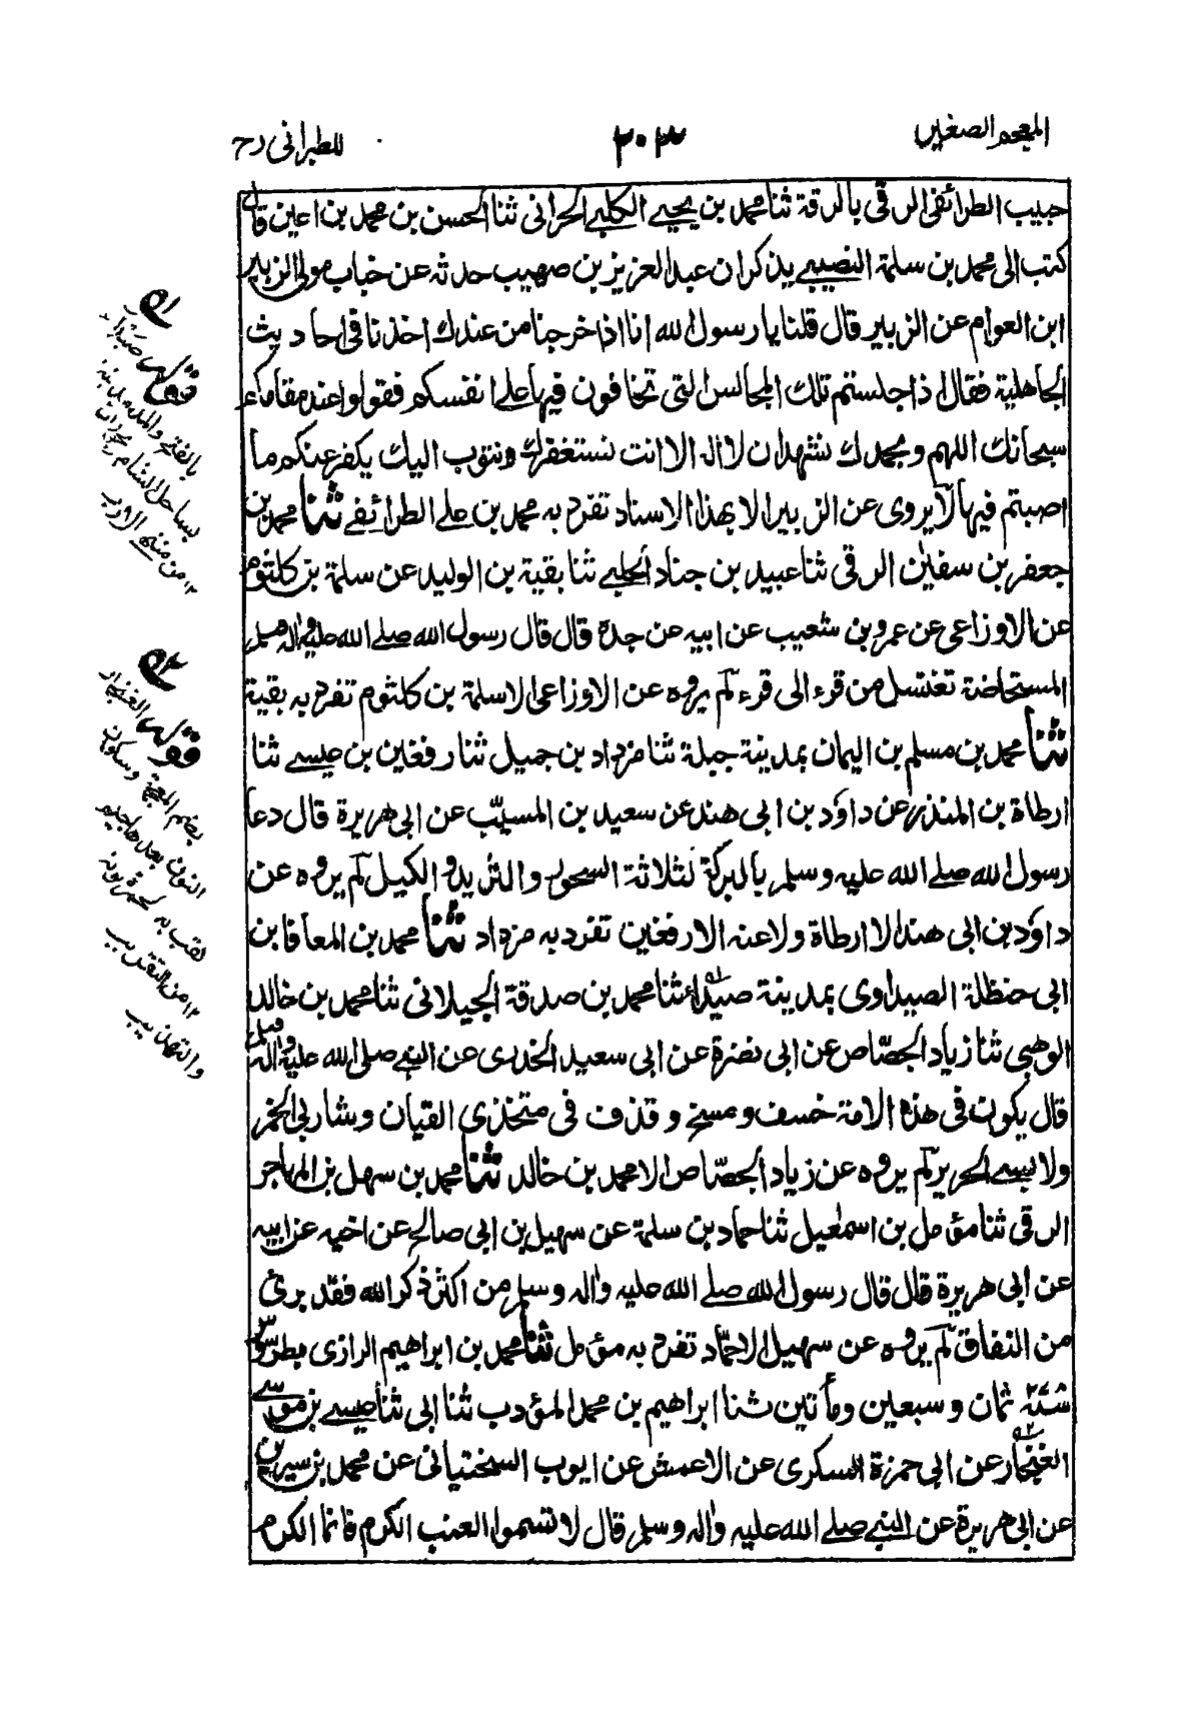 المعجم الصغير
٢٠٣
للطبرانی رح
حبيب الطرائفی الرقی بالرقة ثنا محمد بن يحيے الكلبے الحرانی ثنا الحسن بن محمد بن اعين قال
كتب الی محمد بن سلمة النصيبے يذكر ان عبد العزيز بن صهيب حدثه عن خباب مولی الزبير
ابن العوام عن الزبير قال قلنا يا رسول الله انا اذا خرجنا من عندك اخذنا فی احاديث
الجاهلية فقال اذا جلستم تلك المجالس التی تخافون فيها علے انفسكم فقولوا عند مقامكم
سبحانك اللهم وبحمدك نشهد ان لا اله الا انت نستغفرك ونتوب اليك يكفر عنكم ما
اصبتم فيها لا يروی عن الزبير الا بهذا الاسناد تفرد به محمد بن علے الطرائفے ثنا محمد بن
جعفر بن سفيٰن الرقی ثنا عبيد بن جناد الحلبے ثنا بقية بن الوليد عن سلمة بن كلثوم
عن الاوزاعی عن عمرو بن شعيب عن ابيه عن جده قال قال رسول الله صلے الله عليه واٰله وسلم
المستحاضة تغتسل من قرء الی قرء لم يروه عن الاوزاعی الا سلمة بن كلثوم تفرد به بقية
ثنا محمد بن مسلم بن اليمان بمدينة جبلة ثنا مزداد بن جميل ثنا رفغين بن عيسے ثنا
ارطاة بن المنذر عن داؤد بن ابی هند عن سعيد بن المسيّب عن ابی هريرة قال دعا
رسول الله صلے الله عليه وسلم بالبركة لثلاثة السحور والثريد والكيل لم يروه عن
داؤد بن ابی هند الا ارطاة ولا عنه الا رفغين تفرد به مزداد ثنا محمد بن المعافا بن
ابی حنظلة الصيداوی بمدينة صيداء ثنا محمد بن صدقة الجيلانی ثنا محمد بن خالد
الوهبی ثنا زياد الجصّاص عن ابی نضرة عن ابی سعيد الخدری عن النبے صلی الله عليه واٰله وسلم
قال يكون فی هذه الامة خسف ومسخ وقذف فی متخذی القيان وشاربی الخمر
ولابسے الحرير لم يروه عن زياد الجصّاص الا محمد بن خالد ثنا محمد بن سهل بن المهاجر
الرقی ثنا مؤمل بن اسمٰعيل ثنا حماد بن سلمة عن سهيل بن ابی صالح عن اخيه عن ابيه
عن ابی هريرة قال قال رسول الله صلے الله عليه واٰله وسلم من اكثر ذكر الله فقد برئ
من النفاق لم يروه عن سهيل الا حمّاد تفرد به مؤمل ثنا محمد بن ابراهيم الرازی بطرسوس
سنة ٢٧٨ ثمان وسبعين ومأتين ثنا ابراهيم بن محمد المؤدب ثنا ابی ثنا عيسے بن موسے
الغنجار عن ابی حمزة السكری عن الاعمش عن ايوب السختيانی عن محمد بن سيرين
عن ابی هريرة عن النبے صلے الله عليه واٰله وسلم قال لا تسموا العنب الكرم فانما الكرم
١ه
قوله صيداء
بالفتح والمد مدينة
بساحل الشام
١٢ من منتهی الارب
٢ه
قوله الغنجار
بضم المعجمة وسكون
النون بعدها جيم
لقب به لحمرة لونه
١٢ من التقريب
والتهذيب